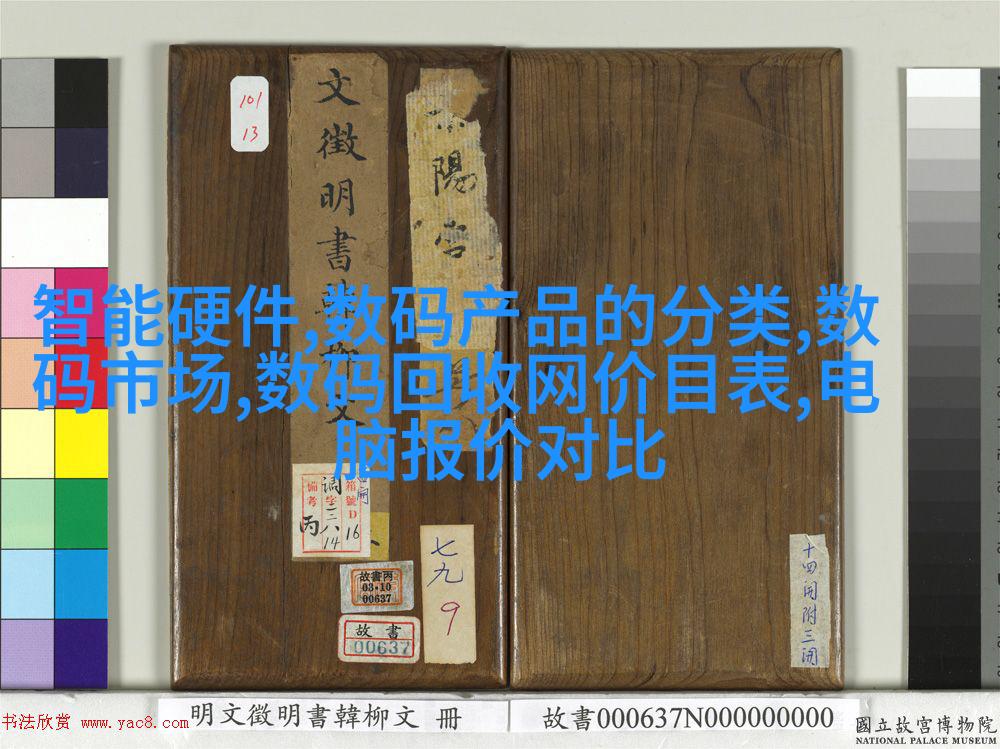 101
13
文徵明書韓柳文
陽宮
智能硬件,数码产品的分类,数
码市场,数码回收网价目表,电
脑报价对比
箱號D
16
調字三八
14
備考
丙
故書丙
03·10
00637
故書
00637
七九
9
十四開附三開
明文徵明書韓柳文 冊
故書000637N000000000
書法欣赏 www.yac8.com
國立故宮博物院
NATIONAL PALACE MUSEUM